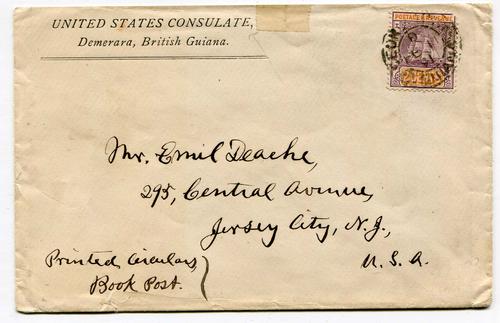 UNITED STATES CONSULATE,
Demerara, British Guiana.
POSTAGE & REVENUE
Mr. Emil Deache,
295, Central Avenue,
Jersey City, N.J.,
U.S.A.
Printed Circulars
Book Post.